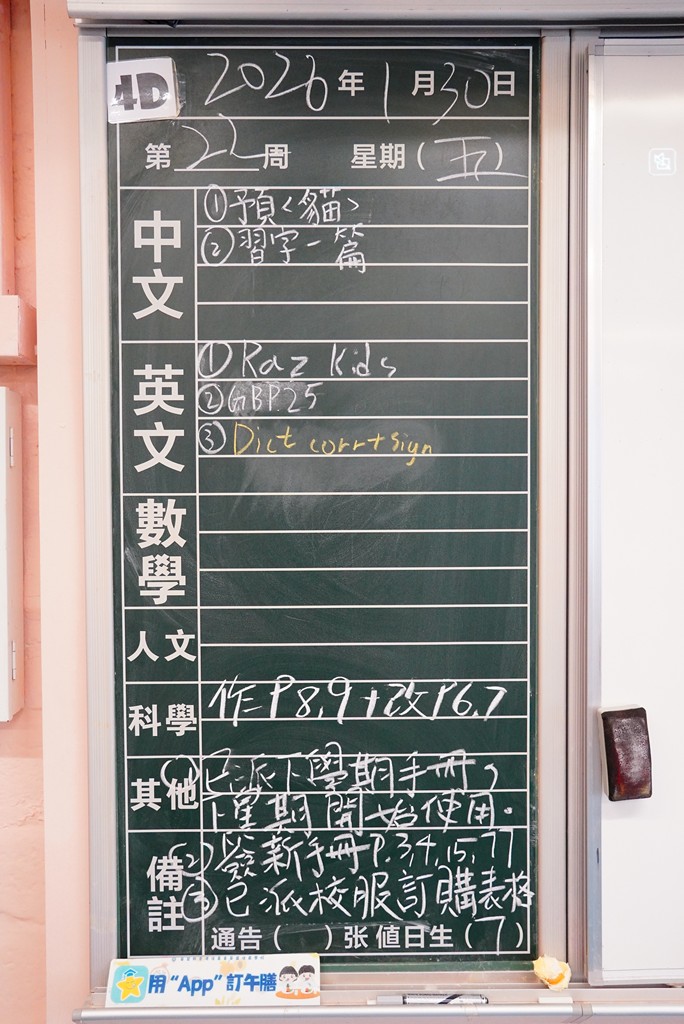 4D
2026年1月30日
第22周 星期(五)
中文
①預〈貓〉
②習字一篇
英文
①Raz Kids
②GBP.25
③Dict corr+sign
數學
人文
科學
作P8,9+改P6,7
其他
(1)已派下學期手冊,
下星期開始使用。
備註
(2)簽新手冊P.3,4,15,77
(3)已派校服訂購表格
通告( )张 值日生(7)
用“App”訂午膳